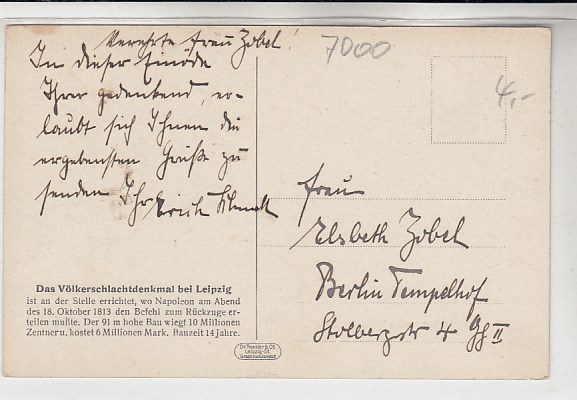 Verehrte Frau Zobel!
In dieser Einöde
Ihrer gedenkend, er-
laubt sich Ihnen die
ergebensten Grüße zu
senden Ihr Erich
7000
4,-
Frau
Elsbeth Zobel
Berlin Tempelhof
Stolbergstr 4 Gh II
Das Völkerschlachtdenkmal bei Leipzig
ist an der Stelle errichtet, wo Napoleon am Abend
des 18. Oktober 1813 den Befehl zum Rückzuge er-
teilen mußte. Der 91 m hohe Bau wiegt 10 Millionen
Zentner u. kostet 6 Millionen Mark. Bauzeit 14 Jahre.
Dr. Trenkler & Co.
Leipzig-St.